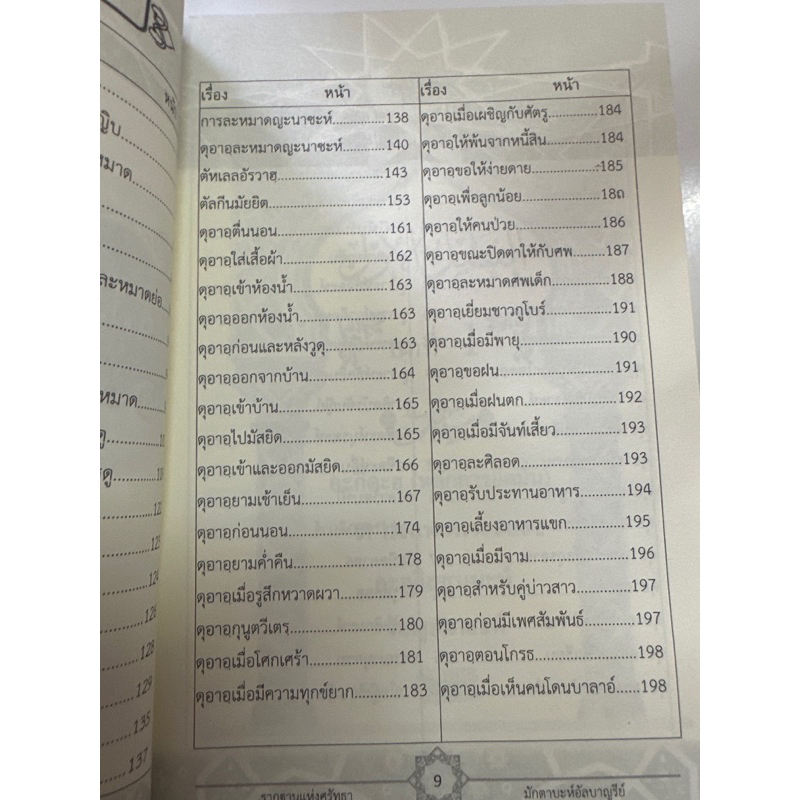 เรื่อง หน้า
การละหมาดญะนาซะห์..............138
ดุอาอฺละหมาดญะนาซะห์............140
ตัหเลลอัรวาฮฺ........................143
ตัลกีนมัยยิต..........................153
ดุอาอฺตื่นนอน........................161
ดุอาอฺใส่เสื้อผ้า......................162
ดุอาอฺเข้าห้องน้ำ.....................163
ดุอาอฺออกห้องน้ำ....................163
ดุอาอฺก่อนและหลังวูดุ...............163
ดุอาอฺออกจากบ้าน..................164
ดุอาอฺเข้าบ้าน.......................165
ดุอาอฺไปมัสยิด.......................165
ดุอาอฺเข้าและออกมัสยิด............166
ดุอาอฺยามเช้าเย็น....................167
ดุอาอฺก่อนนอน......................174
ดุอาอฺยามค่ำคืน.....................178
ดุอาอฺเมื่อรูสึกหวาดผวา............179
ดุอาอฺกุนูตวีเตรฺ.....................180
ดุอาอฺเมื่อโศกเศร้า..................181
ดุอาอฺเมื่อมีความทุกข์ยาก..........183
เรื่อง หน้า
ดุอาอฺเมื่อเผชิญกับศัตรู.............184
ดุอาอฺให้พ้นจากหนี้สิน..............184
ดุอาอฺขอให้ง่ายดาย.................185
ดุอาอฺเพื่อลูกน้อย...................18ถ
ดุอาอฺให้คนป่วย.....................186
ดุอาอฺขณะปิดตาให้กับศพ.........187
ดุอาอฺละหมาดศพเด็ก..............188
ดุอาอฺเยี่ยมชาวกูโบร์................191
ดุอาอฺเมื่อมีพายุ.....................190
ดุอาอฺขอฝน..........................191
ดุอาอฺเมื่อฝนตก.....................192
ดุอาอฺเมื่อมีจันท์เสี้ยว...............193
ดุอาอฺละศิลอด.......................193
ดุอาอฺรับประทานอาหาร............194
ดุอาอฺเลี้ยงอาหารแขก..............195
ดุอาอฺเมื่อมีจาม......................196
ดุอาอฺสำหรับคู่บ่าวสาว.............197
ดุอาอฺก่อนมีเพศสัมพันธ์...........197
ดุอาอฺตอนโกรธ......................198
ดุอาอฺเมื่อเห็นคนโดนบาลาอ์......198
รากฐานแห่งศรัทธา 9 มักตาบะห์อัลบาญูรีย์